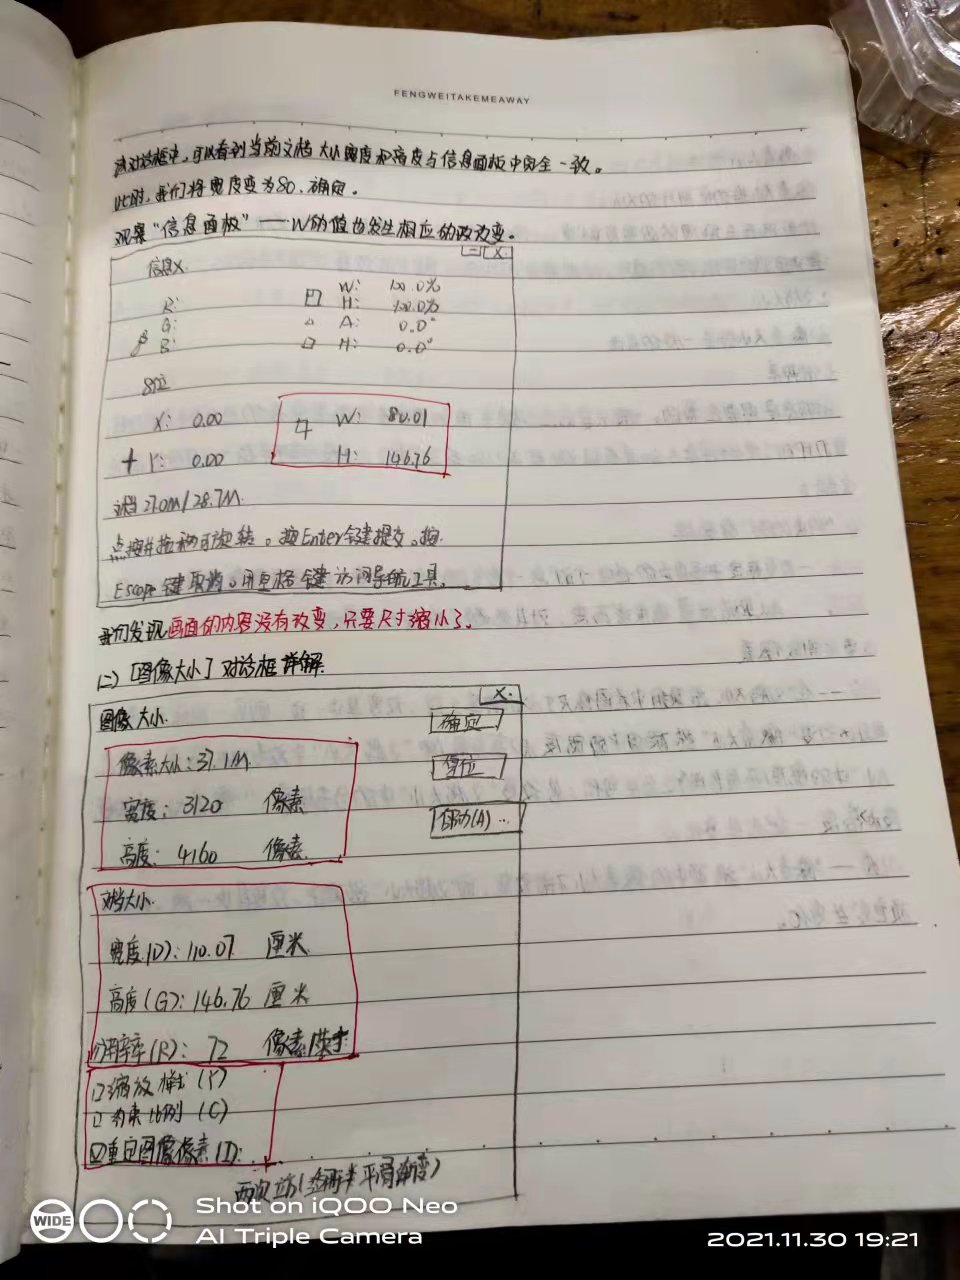 FENGWEITAKEMEAWAY
该对话框中,可以看到当前文档大小宽度和高度与信息面板中完全一致。
此时,我们将宽度变为80.确定。
观察"信息面板"——W的值也发生相应的改变。
信息X.
W: 100.0%
R: H: 100.0%
G: A: 0.0°
B: H: 0.0°
8位
X: 0.00 W: 80.01
+ Y: 0.00 H: 146.76
文档 27.0M/28.7M
点按并拖移可旋转。按Enter键提交。按
Escape键取消。用空格键访问导航工具.
我们发现画面的内容没有改变,只要尺寸缩小了.
(二) [图像大小] 对话框详解
X.
图像大小. 确定
像素大小:37.1M
宽度: 3120 像素 复位
高度: 4160 像素. 自动(A) …
文档大小.
宽度(D): 110.07 厘米
高度(G): 146.76 厘米
分辨率(R): 72 像素/英寸
□缩放样式 (Y)
□约束比例 (C)
☑重定图像像素(I):
两次立方(适用于平滑渐变)
WIDE
Shot on iQOO Neo
AI Triple Camera
2021.11.30 19:21